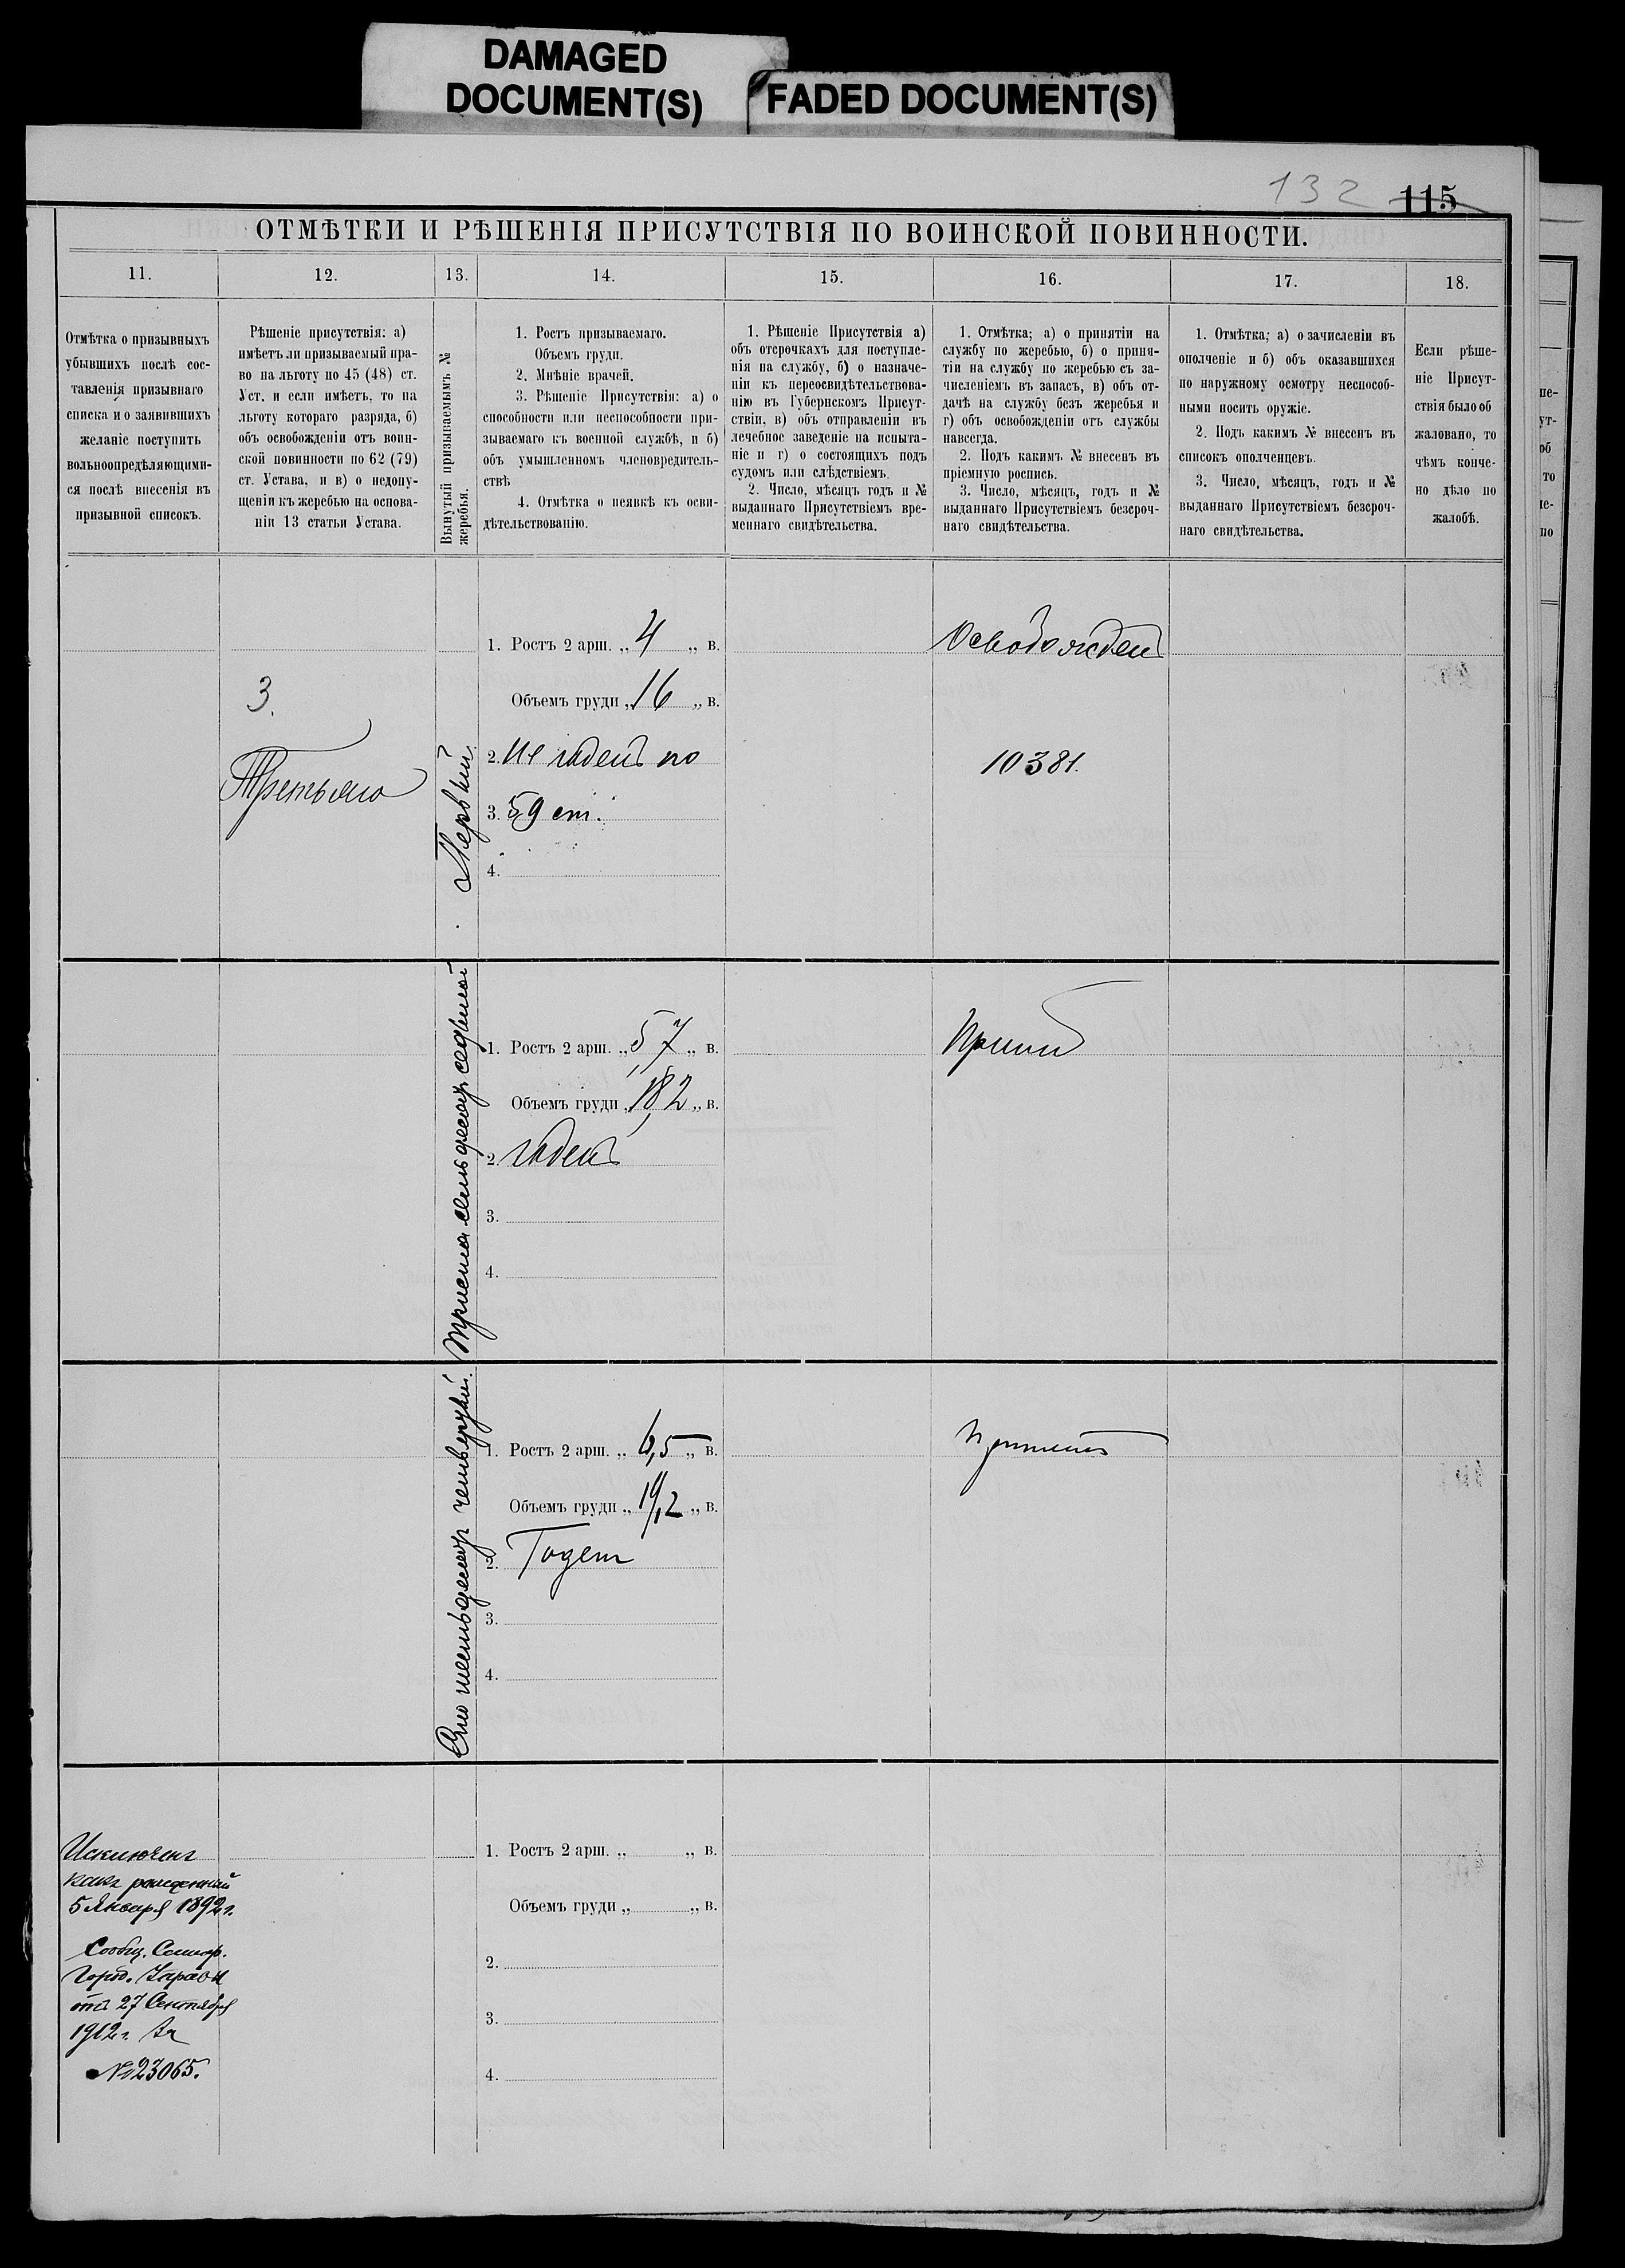 DAMAGED
DOCUMENT(S)
FADED DOCUMENT(S)
132 115
ОТМѢТКИ И РѢШЕНІЯ ПРИСУТСТВІЯ ПО ВОИНСКОЙ ПОВИННОСТИ.
11.
12.
13.
14.
15.
16.
17.
18.
Отмѣтка о призывныхъ
убывшихъ послѣ сос-
тавленія призывнаго
списка и о заявившихъ
желаніе поступить
вольноопредѣляющими-
ся послѣ внесенія въ
призывной списокъ.
Рѣшеніе присутствія: а)
имѣетъ ли призываемый пра-
во на льготу по 45 (48) ст.
Уст. и если имѣетъ, то на
льготу котораго разряда, б)
объ освобожденіи отъ воин-
ской повинности по 62 (79)
ст. Устава, и в) о недопу-
щеніи къ жеребью на основа-
ніи 13 статьи Устава.
Вынутый призываемымъ №
жеребья.
1. Ростъ призываемаго.
Объемъ груди.
2. Мнѣніе врачей.
3. Рѣшеніе Присутствія: а) о
способности или неспособности при-
зываемаго къ военной службѣ, и б)
объ умышленномъ членовредитель-
ствѣ
4. Отмѣтка о неявкѣ къ осви-
дѣтельствованію.
1. Рѣшеніе Присутствія а)
объ отсрочкахъ для поступле-
нія на службу, б) о назначе-
ніи къ переосвидѣтельствова-
нію въ Губернскомъ Присут-
ствіи, в) объ отправленіи въ
лечебное заведеніе на испыта-
ніе и г) о состоящихъ подъ
судомъ или слѣдствіемъ.
2. Число, мѣсяцъ годъ и №
выданнаго Присутствіемъ вре-
меннаго свидѣтельства.
1. Отмѣтка; а) о принятіи на
службу по жеребью, б) о приня-
тіи на службу по жеребью съ за-
численіемъ въ запасъ, в) объ от-
дачѣ на службу безъ жеребья и
г) объ освобожденіи отъ службы
навсегда.
2. Подъ какимъ № внесенъ въ
пріемную роспись.
3. Число, мѣсяцъ, годъ и №
выданнаго Присутствіемъ безсроч-
наго свидѣтельства.
1. Отмѣтка; а) о зачисленіи въ
ополченіе и б) объ оказавшихся
по наружному осмотру неспособ-
ными носить оружіе.
2. Подъ какимъ № внесенъ въ
списокъ ополченцевъ.
3. Число, мѣсяцъ, годъ и №
выданнаго Присутствіемъ безсроч-
наго свидѣтельства.
Если рѣше-
ніе Присут-
ствія было об
жаловано, то
чѣмъ конче-
но дѣло по
жалобѣ.
3.
Третьяго
Первый
1. Ростъ 2 арш. „ 4 „ в.
Объемъ груди „ 16 „ в.
2. Не годенъ по
3. 59 ст.
4.
Освобожденъ
10381.
Триста семьдесятъ седьмой
1. Ростъ 2 арш. „ 5,7 „ в.
Объемъ груди „ 18,2 „ в.
2. годенъ
3.
4.
Принятъ
Сто шестьдесятъ четвертый.
1. Ростъ 2 арш. „ 6,5 „ в.
Объемъ груди „ 19,2 „ в.
2. Годенъ
3.
4.
принятъ
Исключенъ
какъ рожденный
5 Января 1892 г.
Сообщ.
Город. Управы
отъ 27 Сентября
1912 г. за
№ 23065.
1. Ростъ 2 арш. „ „ в.
Объемъ груди „ „ в.
2.
3.
4.